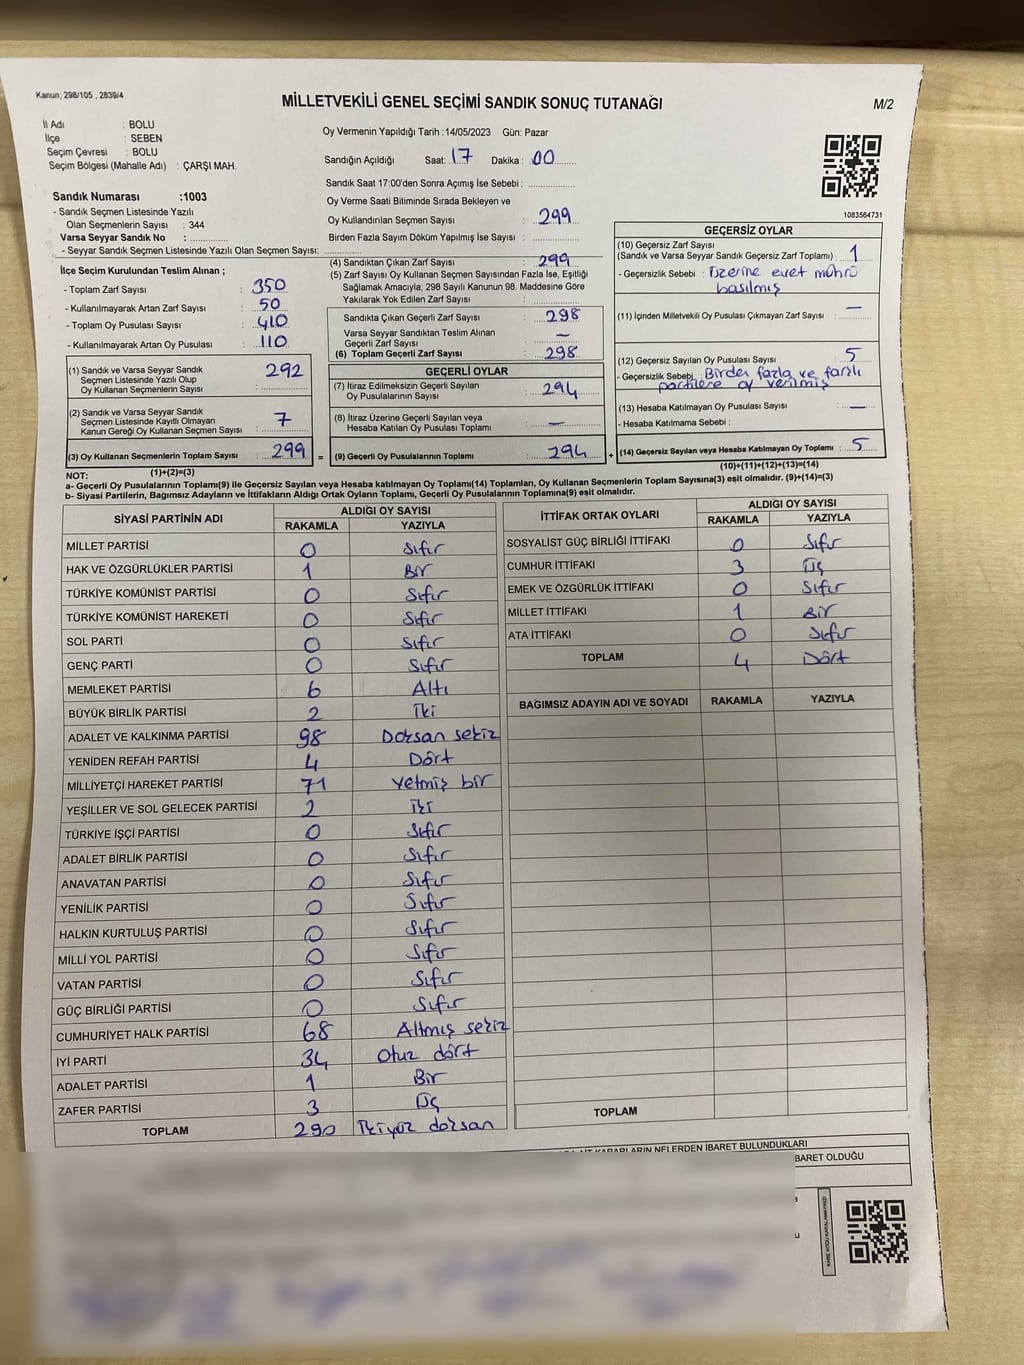 Kanun; 298/105 , 2839/4
MİLLETVEKİLİ GENEL SEÇİMİ SANDIK SONUÇ TUTANAĞI
M/2
İl Adı : BOLU
İlçe : SEBEN
Seçim Çevresi : BOLU
Seçim Bölgesi (Mahalle Adı) : ÇARŞI MAH.
Sandık Numarası :1003
- Sandık Seçmen Listesinde Yazılı
Olan Seçmenlerin Sayısı : 344
Varsa Seyyar Sandık No :
- Seyyar Sandık Seçmen Listesinde Yazılı Olan Seçmen Sayısı:
İlçe Seçim Kurulundan Teslim Alınan ;
- Toplam Zarf Sayısı : 350
- Kullanılmayarak Artan Zarf Sayısı : 50
- Toplam Oy Pusulası Sayısı : 410
- Kullanılmayarak Artan Oy Pusulası : 110
(1) Sandık ve Varsa Seyyar Sandık
Seçmen Listesinde Yazılı Olup
Oy Kullanan Seçmenlerin Sayısı : 292
(2) Sandık ve Varsa Seyyar Sandık
Seçmen Listesinde Kayıtlı Olmayan
Kanun Gereği Oy Kullanan Seçmen Sayısı : 7
(3) Oy Kullanan Seçmenlerin Toplam Sayısı : 299 =
Oy Vermenin Yapıldığı Tarih :14/05/2023 Gün: Pazar
Sandığın Açıldığı Saat: 17 Dakika : 00
Sandık Saat 17:00'den Sonra Açımış İse Sebebi :
Oy Verme Saati Bitiminde Sırada Bekleyen ve
Oy Kullandırılan Seçmen Sayısı : 299
Birden Fazla Sayım Döküm Yapılmış İse Sayısı :
(4) Sandıktan Çıkan Zarf Sayısı : 299
(5) Zarf Sayısı Oy Kullanan Seçmen Sayısından Fazla İse, Eşitliği
Sağlamak Amacıyla; 298 Sayılı Kanunun 98. Maddesine Göre
Yakılarak Yok Edilen Zarf Sayısı :
Sandıkta Çıkan Geçerli Zarf Sayısı : 298
Varsa Seyyar Sandıktan Teslim Alınan
Geçerli Zarf Sayısı : —
(6) Toplam Geçerli Zarf Sayısı : 298
GEÇERLİ OYLAR
(7) İtiraz Edilmeksizin Geçerli Sayılan
Oy Pusulalarının Sayısı : 294
(8) İtiraz Üzerine Geçerli Sayılan veya
Hesaba Katılan Oy Pusulası Toplamı : —
(9) Geçerli Oy Pusulalarının Toplamı : 294 +
1083564731
GEÇERSİZ OYLAR
(10) Geçersiz Zarf Sayısı
(Sandık ve Varsa Seyyar Sandık Geçersiz Zarf Toplamı) : 1
- Geçersizlik Sebebi : Üzerine evet mührü
basılmış
(11) İçinden Milletvekili Oy Pusulası Çıkmayan Zarf Sayısı : —
(12) Geçersiz Sayılan Oy Pusulası Sayısı : 5
- Geçersizlik Sebebi : Birden fazla ve farklı
partilere oy verilmiş
(13) Hesaba Katılmayan Oy Pusulası Sayısı : —
- Hesaba Katılmama Sebebi :
(14) Geçersiz Sayılan veya Hesaba Katılmayan Oy Toplamı : 5
NOT: (1)+(2)=(3) (10)+(11)+(12)+(13)=(14)
a- Geçerli Oy Pusulalarının Toplamı(9) ile Geçersiz Sayılan veya Hesaba katılmayan Oy Toplamı(14) Toplamları, Oy Kullanan Seçmenlerin Toplam Sayısına(3) eşit olmalıdır. (9)+(14)=(3)
b- Siyasi Partilerin, Bağımsız Adayların ve İttifakların Aldığı Ortak Oyların Toplamı, Geçerli Oy Pusulalarının Toplamına(9) eşit olmalıdır.
SİYASİ PARTİNİN ADI ALDIĞI OY SAYISI
RAKAMLA YAZIYLA
MİLLET PARTİSİ 0 Sıfır
HAK VE ÖZGÜRLÜKLER PARTİSİ 1 Bir
TÜRKİYE KOMÜNİST PARTİSİ 0 Sıfır
TÜRKİYE KOMÜNİST HAREKETİ 0 Sıfır
SOL PARTİ 0 Sıfır
GENÇ PARTİ 0 Sıfır
MEMLEKET PARTİSİ 6 Altı
BÜYÜK BİRLİK PARTİSİ 2 İki
ADALET VE KALKINMA PARTİSİ 98 Doksan sekiz
YENİDEN REFAH PARTİSİ 4 Dört
MİLLİYETÇİ HAREKET PARTİSİ 71 Yetmiş bir
YEŞİLLER VE SOL GELECEK PARTİSİ 2 İki
TÜRKİYE İŞÇİ PARTİSİ 0 Sıfır
ADALET BİRLİK PARTİSİ 0 Sıfır
ANAVATAN PARTİSİ 0 Sıfır
YENİLİK PARTİSİ 0 Sıfır
HALKIN KURTULUŞ PARTİSİ 0 Sıfır
MİLLİ YOL PARTİSİ 0 Sıfır
VATAN PARTİSİ 0 Sıfır
GÜÇ BİRLİĞİ PARTİSİ 0 Sıfır
CUMHURİYET HALK PARTİSİ 68 Altmış sekiz
İYİ PARTİ 34 Otuz dört
ADALET PARTİSİ 1 Bir
ZAFER PARTİSİ 3 Üç
TOPLAM 290 İkiyüz doksan
İTTİFAK ORTAK OYLARI ALDIĞI OY SAYISI
RAKAMLA YAZIYLA
SOSYALİST GÜÇ BİRLİĞİ İTTİFAKI 0 Sıfır
CUMHUR İTTİFAKI 3 Üç
EMEK VE ÖZGÜRLÜK İTTİFAKI 0 Sıfır
MİLLET İTTİFAKI 1 Bir
ATA İTTİFAKI 0 Sıfır
TOPLAM 4 Dört
BAĞIMSIZ ADAYIN ADI VE SOYADI RAKAMLA YAZIYLA
TOPLAM
KARARLARIN NELERDEN İBARET BULUNDUKLARI
BARET OLDUĞU